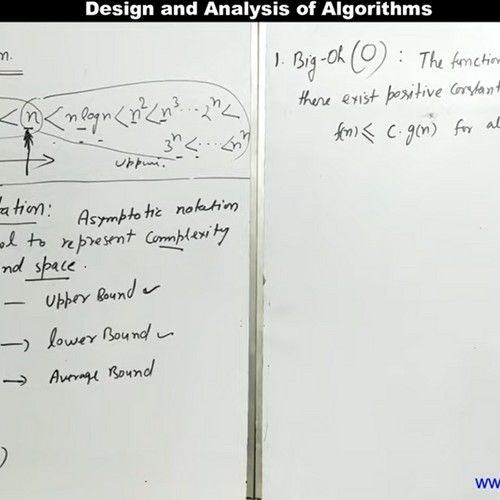 Design and Analysis of Algorithms
n.
< n < n log n < n² < n³ ... 2ⁿ <
3ⁿ < ... < nⁿ
upper.
ation: Asymptotic notation
ol to represent Commplexity
nd space.
— Upper Bound ✓
→ lower Bound ✓
→ Average Bound
)
1. Big-Oh (O) : The function
there exist positive Constant
f(n) ≤ C·g(n) for al
ww